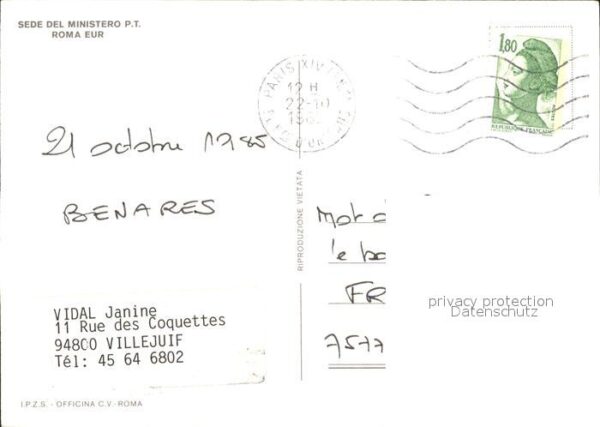 SEDE DEL MINISTERO P.T.
ROMA EUR
1,80
REPUBLIQUE FRANÇAISE
PARIS XIV
12 H
22-10
21 octobre 1985
BENARES
RIPRODUZIONE VIETATA
Mot
le bo
FR
7577
privacy protection
Datenschutz
VIDAL Janine
11 Rue des Coquettes
94800 VILLEJUIF
Tél: 45 64 6802
I.P.Z.S. - OFFICINA C.V. - ROMA